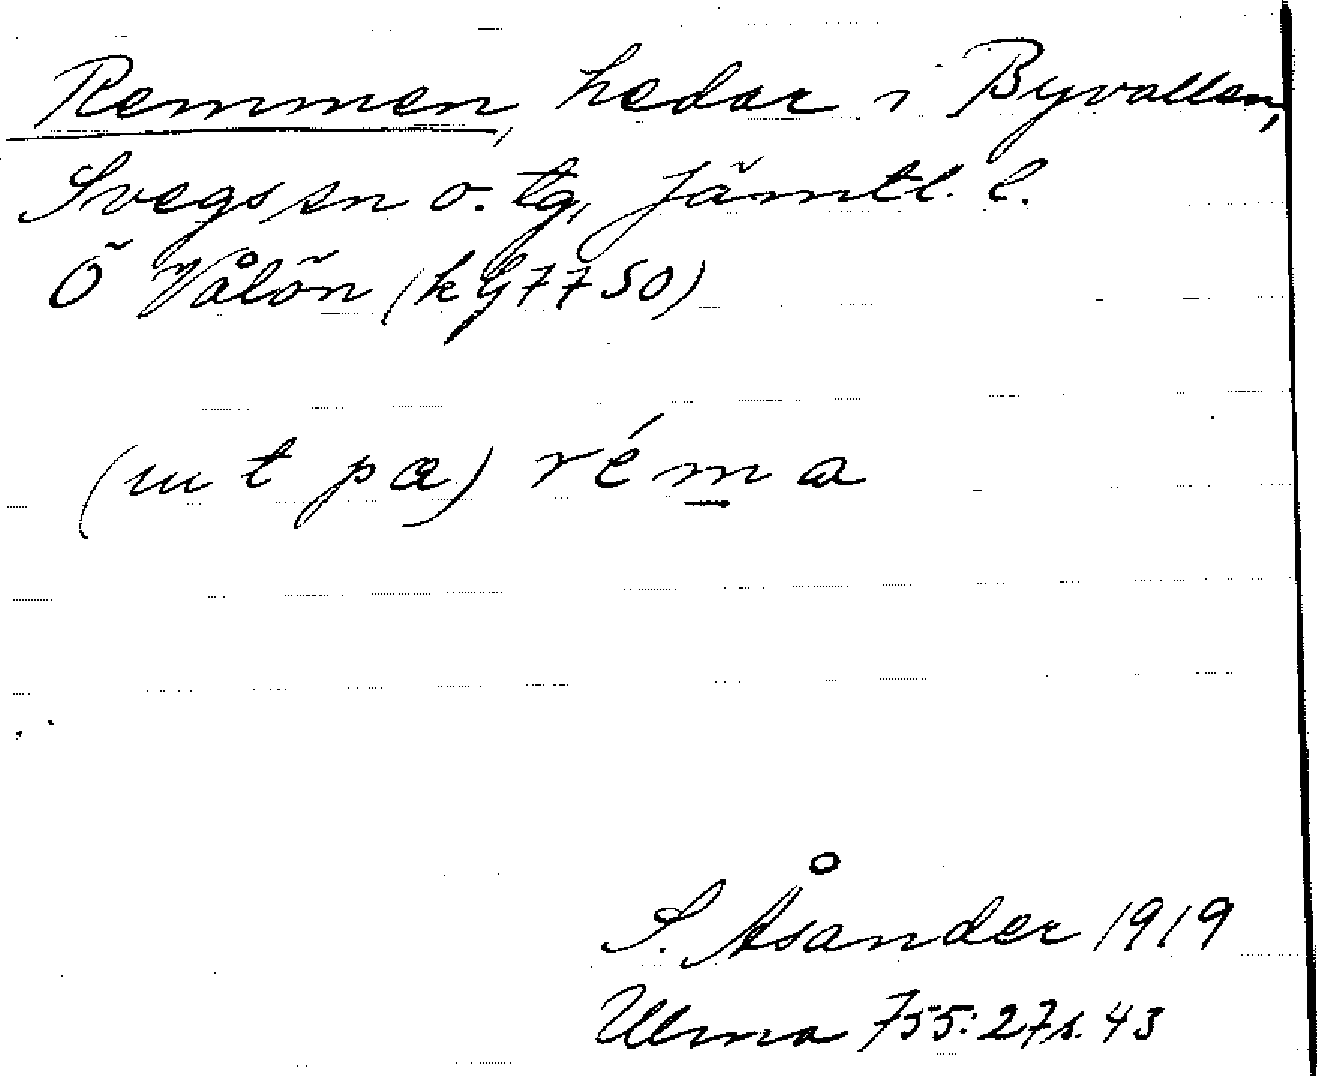 Remmen, hedar i Byvallen,
Svegs sn o. tg, Jämtl. l.
Ö Vålön (k G 7750)
(ut på) réma
S. Åsander 1919
Ulma 755:27 s. 43